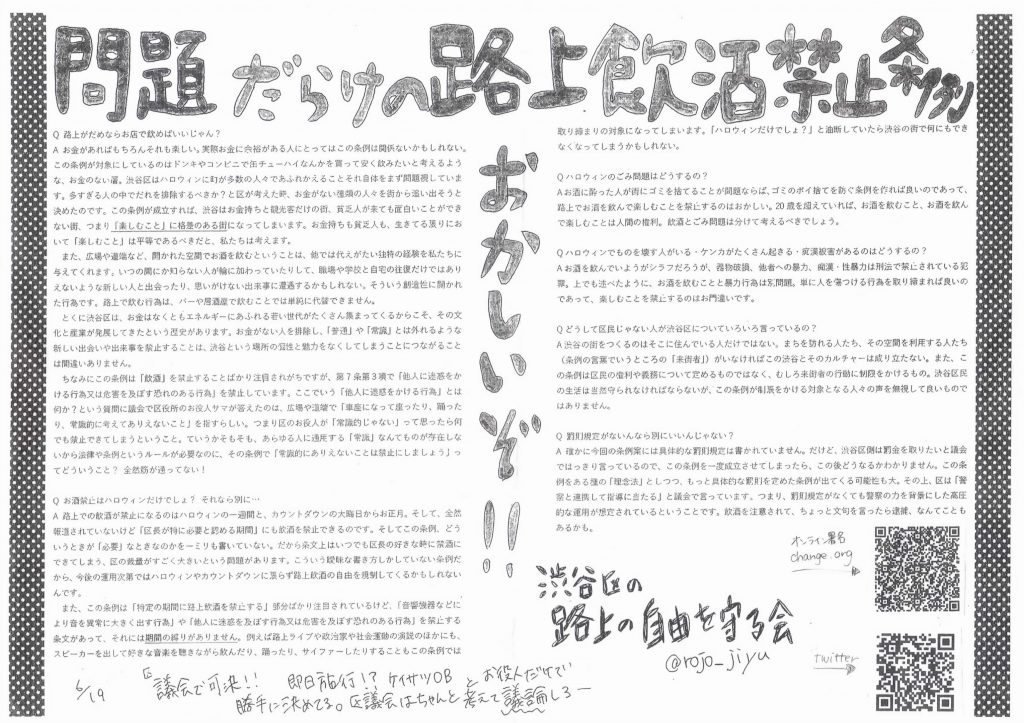 問題だらけの路上飲酒禁止条例
おかしいぞ!!
Q 路上がだめならお店で飲めばいいじゃん?
A お金があればもちろんそれも楽しい。実際お金に余裕がある人にとってはこの条例は関係ないかもしれない。
この条例が対象にしているのはドンキやコンビニで缶チューハイなんかを買って安く飲みたいと考えるよう
な、お金のない層。渋谷区はハロウィンに町が多数の人々であふれかえることそれ自体をまず問題視していま
す。多すぎる人の中でだれを排除するべきか?と区が考えた時、お金がない種類の人々を街から追い出そうと
決めたのです。この条例が成立すれば、渋谷はお金持ちと観光客だけの街、貧乏人が来ても面白いことができ
ない街、つまり「楽しむこと」に格差のある街になってしまいます。お金持ちも貧乏人も、生きてる限りにお
いて「楽しむこと」は平等であるべきだと、私たちは考えます。
また、広場や道端など、開かれた空間でお酒を飲むということは、他では代えがたい独特の経験を私たちに
与えてくれます。いつの間にか知らない人が輪に加わっていたりして、職場や学校と自宅の往復だけではあり
えないような新しい人と出会ったり、思いがけない出来事に遭遇するかもしれない。そういう創造性に開かれ
た行為です。路上で飲む行為は、バーや居酒屋で飲むことでは単純に代替できません。
とくに渋谷区は、お金はなくともエネルギーにあふれる若い世代がたくさん集まってくるからこそ、その文
化と産業が発展してきたという歴史があります。お金がない人を排除し、「普通」や「常識」とは外れるような
新しい出会いや出来事を禁止することは、渋谷という場所の個性と魅力をなくしてしまうことにつながること
は間違いありません。
ちなみにこの条例は「飲酒」を禁止することばかり注目されがちですが、第7条第3項で「他人に迷惑をか
ける行為又は危害を及ぼす恐れのある行為」を禁止しています。ここでいう「他人に迷惑をかける行為」とは
何か?という質問に議会で区役所のお役人サマが答えたのは、広場や道端で「車座になって座ったり、踊った
り、常識的に考えてありえないこと」を指すらしい。つまり区のお役人が「常識的じゃない」って思ったら何
でも禁止できてしまうということ。ていうかそもそも、あらゆる人に通用する「常識」なんてものが存在しな
いから法律や条例というルールが必要なのに、その条例で「常識的にありえないことは禁止にしましょう」っ
てどういうこと? 全然筋が通ってない!
Q お酒禁止はハロウィンだけでしょ? それなら別に…
A 路上での飲酒が禁止になるのはハロウィンの一週間と、カウントダウンの大晦日からお正月。そして、全然
報道されていないけど「区長が特に必要と認める期間」にも飲酒を禁止できるのです。そしてこの条例、どう
いうときが「必要」なときなのかを一ミリも書いていない。だから条文上はいつでも区長の好きな時に禁酒に
できてしまう、区の裁量がすごく大きいという問題があります。こういう曖昧な書き方しかしていない条例だ
から、今後の運用次第ではハロウィンやカウントダウンに限らず路上飲酒の自由を規制してくるかもしれない
んです。
また、この条例は「特定の期間に路上飲酒を禁止する」部分ばかり注目されているけど、「音響強器などに
より音を異常に大きく出す行為」や「他人に迷惑を及ぼす行為又は危害を及ぼす恐れのある行為」を禁止する
条文があって、それには期間の縛りがありません。例えば路上ライブや政治家や社会運動の演説のほかにも、
スピーカーを出して好きな音楽を聴きながら飲んだり、踊ったり、サイファーしたりすることもこの条例では
取り締まりの対象になってしまいます。「ハロウィンだけでしょ?」と油断していたら渋谷の街で何にもでき
なくなってしまうかもしれない。
Q ハロウィンのごみ問題はどうするの?
A お酒に酔った人が街にゴミを捨てることが問題ならば、ゴミのポイ捨てを防ぐ条例を作れば良いのであって、
路上でお酒を飲んで楽しむことを禁止するのはおかしい。20歳を超えていれば、お酒を飲むこと、お酒を飲ん
で楽しむことは人間の権利。飲酒とごみ問題は分けて考えるべきでしょう。
Q ハロウィンでものを壊す人がいる・ケンカがたくさん起きる・痴漢被害があるのはどうするの?
A お酒を飲んでいようがシラフだろうが、器物破損、他者への暴力、痴漢・性暴力は刑法で禁止されている犯
罪。上でも述べたように、お酒を飲むことと暴力行為は別問題。単に人を傷つける行為を取り締まれば良いの
であって、楽しむことを禁止するのはお門違いです。
Q どうして区民じゃない人が渋谷区についていろいろ言っているの?
A 渋谷の街をつくるのはそこに住んでいる人だけではない。まちを訪れる人たち、その空間を利用する人たち
(条例の言葉でいうところの「来街者」)がいなければこの渋谷とそのカルチャーは成り立たない。また、こ
の条例は区民の権利や義務について定めるものではなく、むしろ来街者の行動に制限をかけるもの。渋谷区民
の生活は当然守られなければならないが、この条例が制限をかける対象となる人々の声を無視して良いもので
はありません。
Q 罰則規定がないんなら別にいいんじゃない?
A 確かに今回の条例案には具体的な罰則規定は書かれていません。だけど、渋谷区側は罰金を取りたいと議会
ではっきり言っているので、この条例を一度成立させてしまったら、この後どうなるかわかりません。この条
例をある種の「理念法」としつつ、もっと具体的な罰則を定めた条例が出てくる可能性も大。その上、区は「警
察と連携して指導に当たる」と議会で言っています。つまり、罰則規定がなくても警察の力を背景にした高圧
的な運用が想定されているということです。飲酒を注意されて、ちょっと文句を言ったら逮捕、なんてことも
あるかも。
オンライン署名
change.org
渋谷区の
路上の自由を守る会
@rojo_jiyu
twitter
6/19
区議会で可決!! 即日施行!? ケイサツOBとお役人だけで
勝手に決めてる。区議会はちゃんと考えて議論しろー